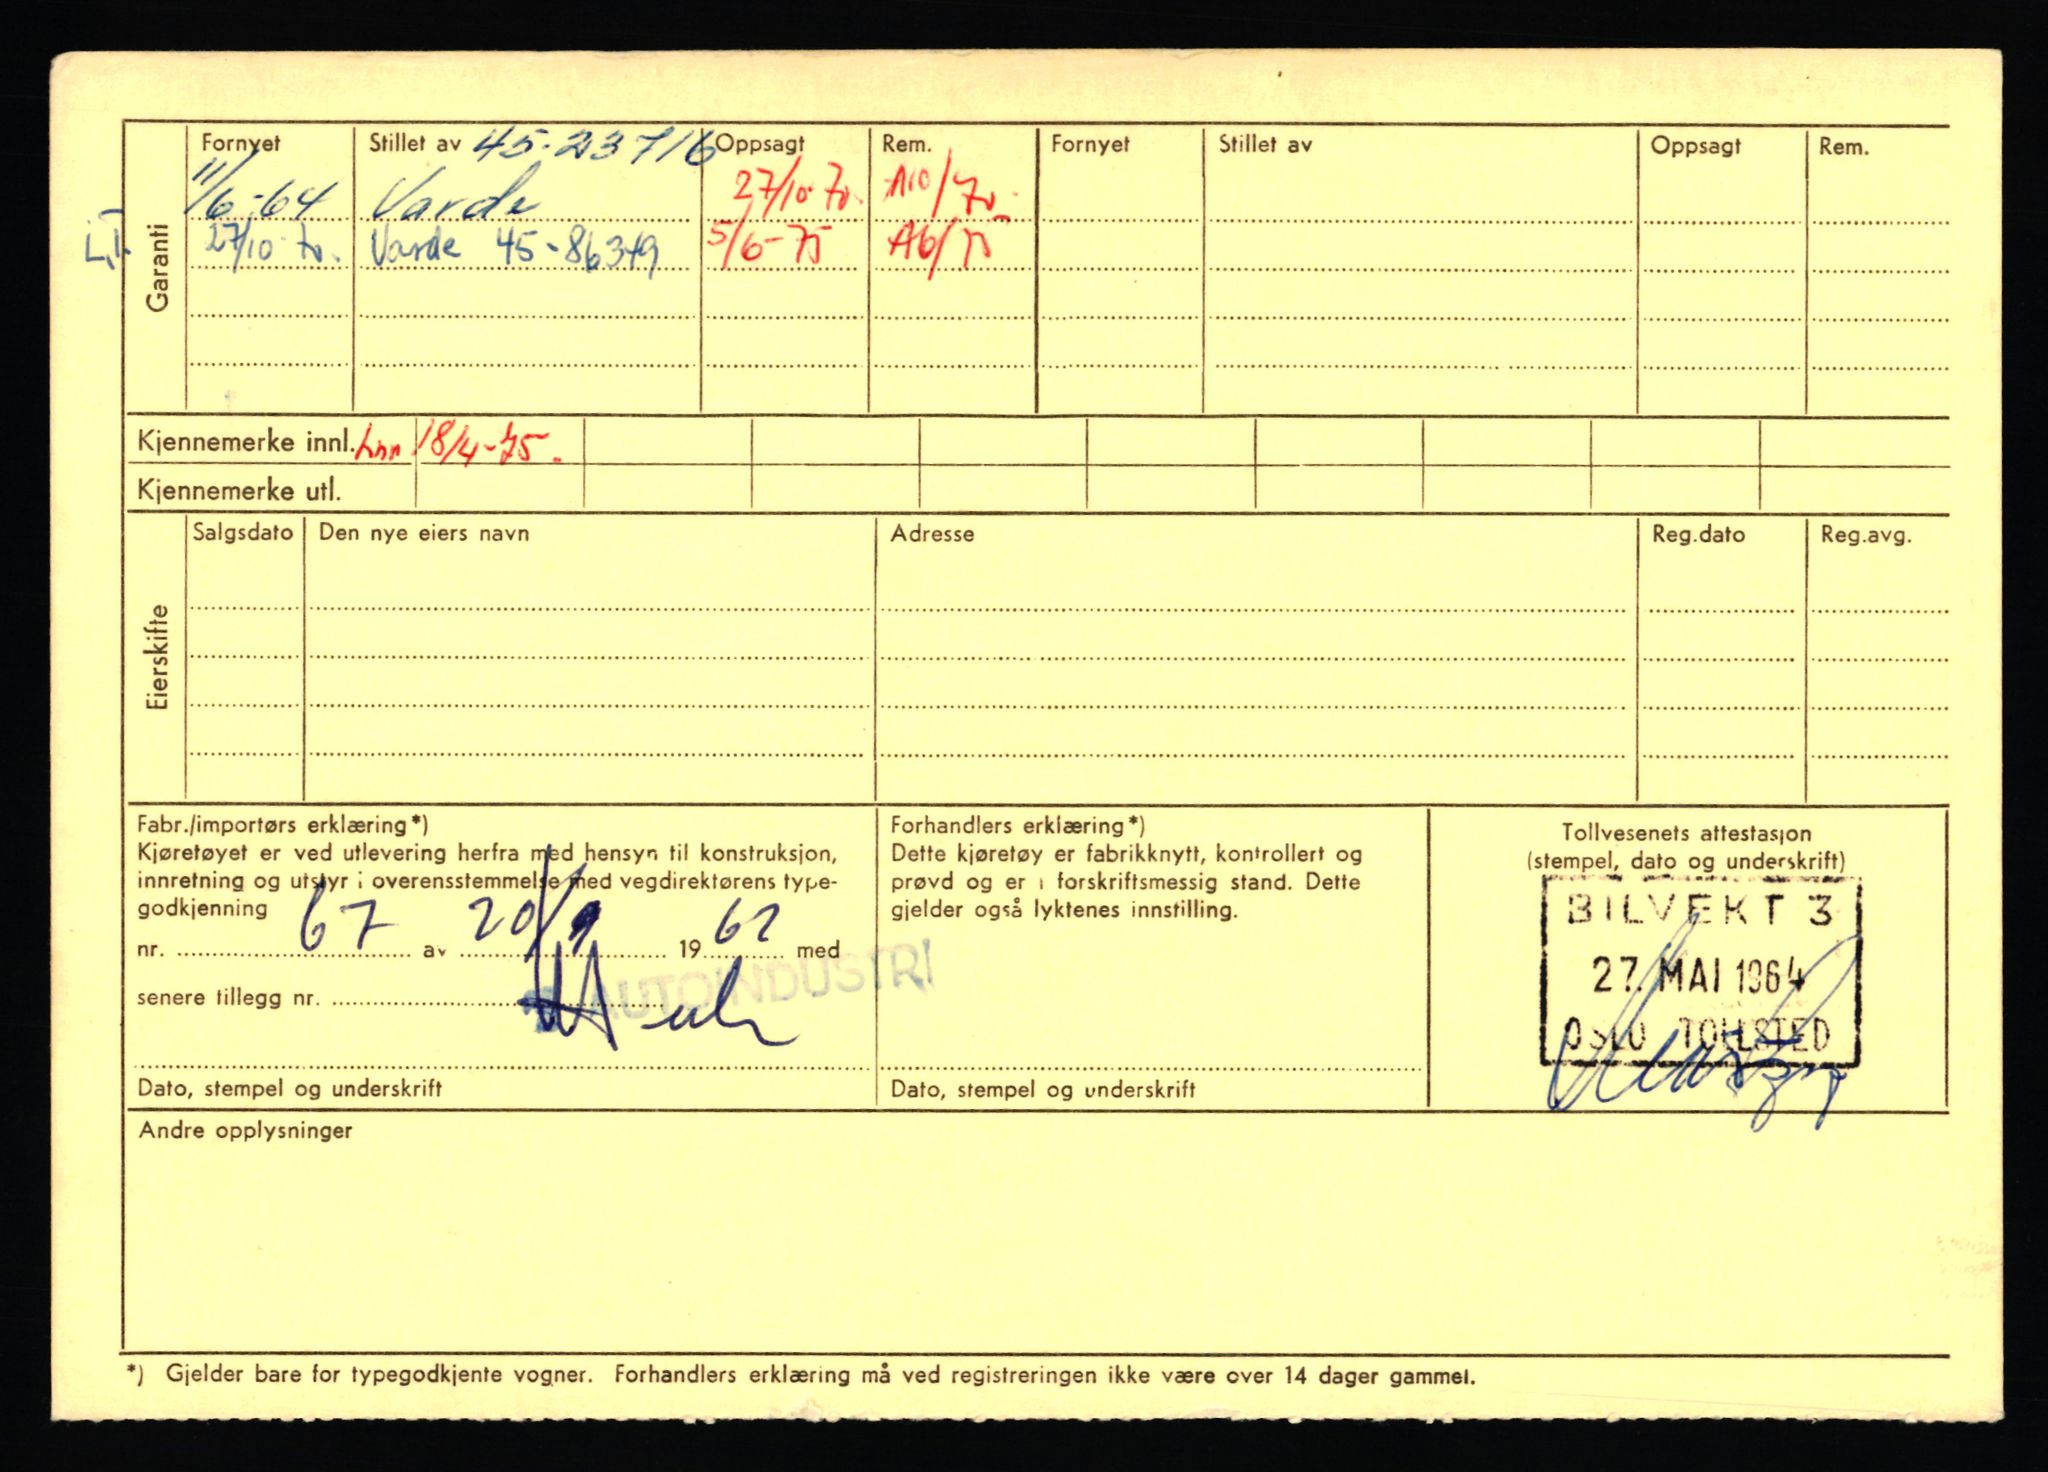 Fornyet Stillet av 45-23716 Oppsagt Rem. Fornyet Stillet av Oppsagt Rem.
11/6-64 Varde 27/10-70. A10/70.
27/10-70. Varde 45-86349 5/6-75 A6/75
Garanti
Kjennemerke innl. 18/4-75.
Kjennemerke utl.
Salgsdato Den nye eiers navn Adresse Reg.dato Reg.avg.
Eierskifte
Fabr./importørs erklæring*)
Kjøretøyet er ved utlevering herfra med hensyn til konstruksjon,
innretning og utstyr i overensstemmelse med vegdirektørens type-
godkjenning
nr. 67 av 20/9 1962 med
senere tillegg nr.
AUTOINDUSTRI
Dato, stempel og underskrift
Forhandlers erklæring*)
Dette kjøretøy er fabrikknytt, kontrollert og
prøvd og er i forskriftsmessig stand. Dette
gjelder også lyktenes innstilling.
Dato, stempel og underskrift
Tollvesenets attestasjon
(stempel, dato og underskrift)
BILVEKT 3
27. MAI 1964
OSLO TOLLSTED
Andre opplysninger
*) Gjelder bare for typegodkjente vogner. Forhandlers erklæring må ved registreringen ikke være over 14 dager gammel.